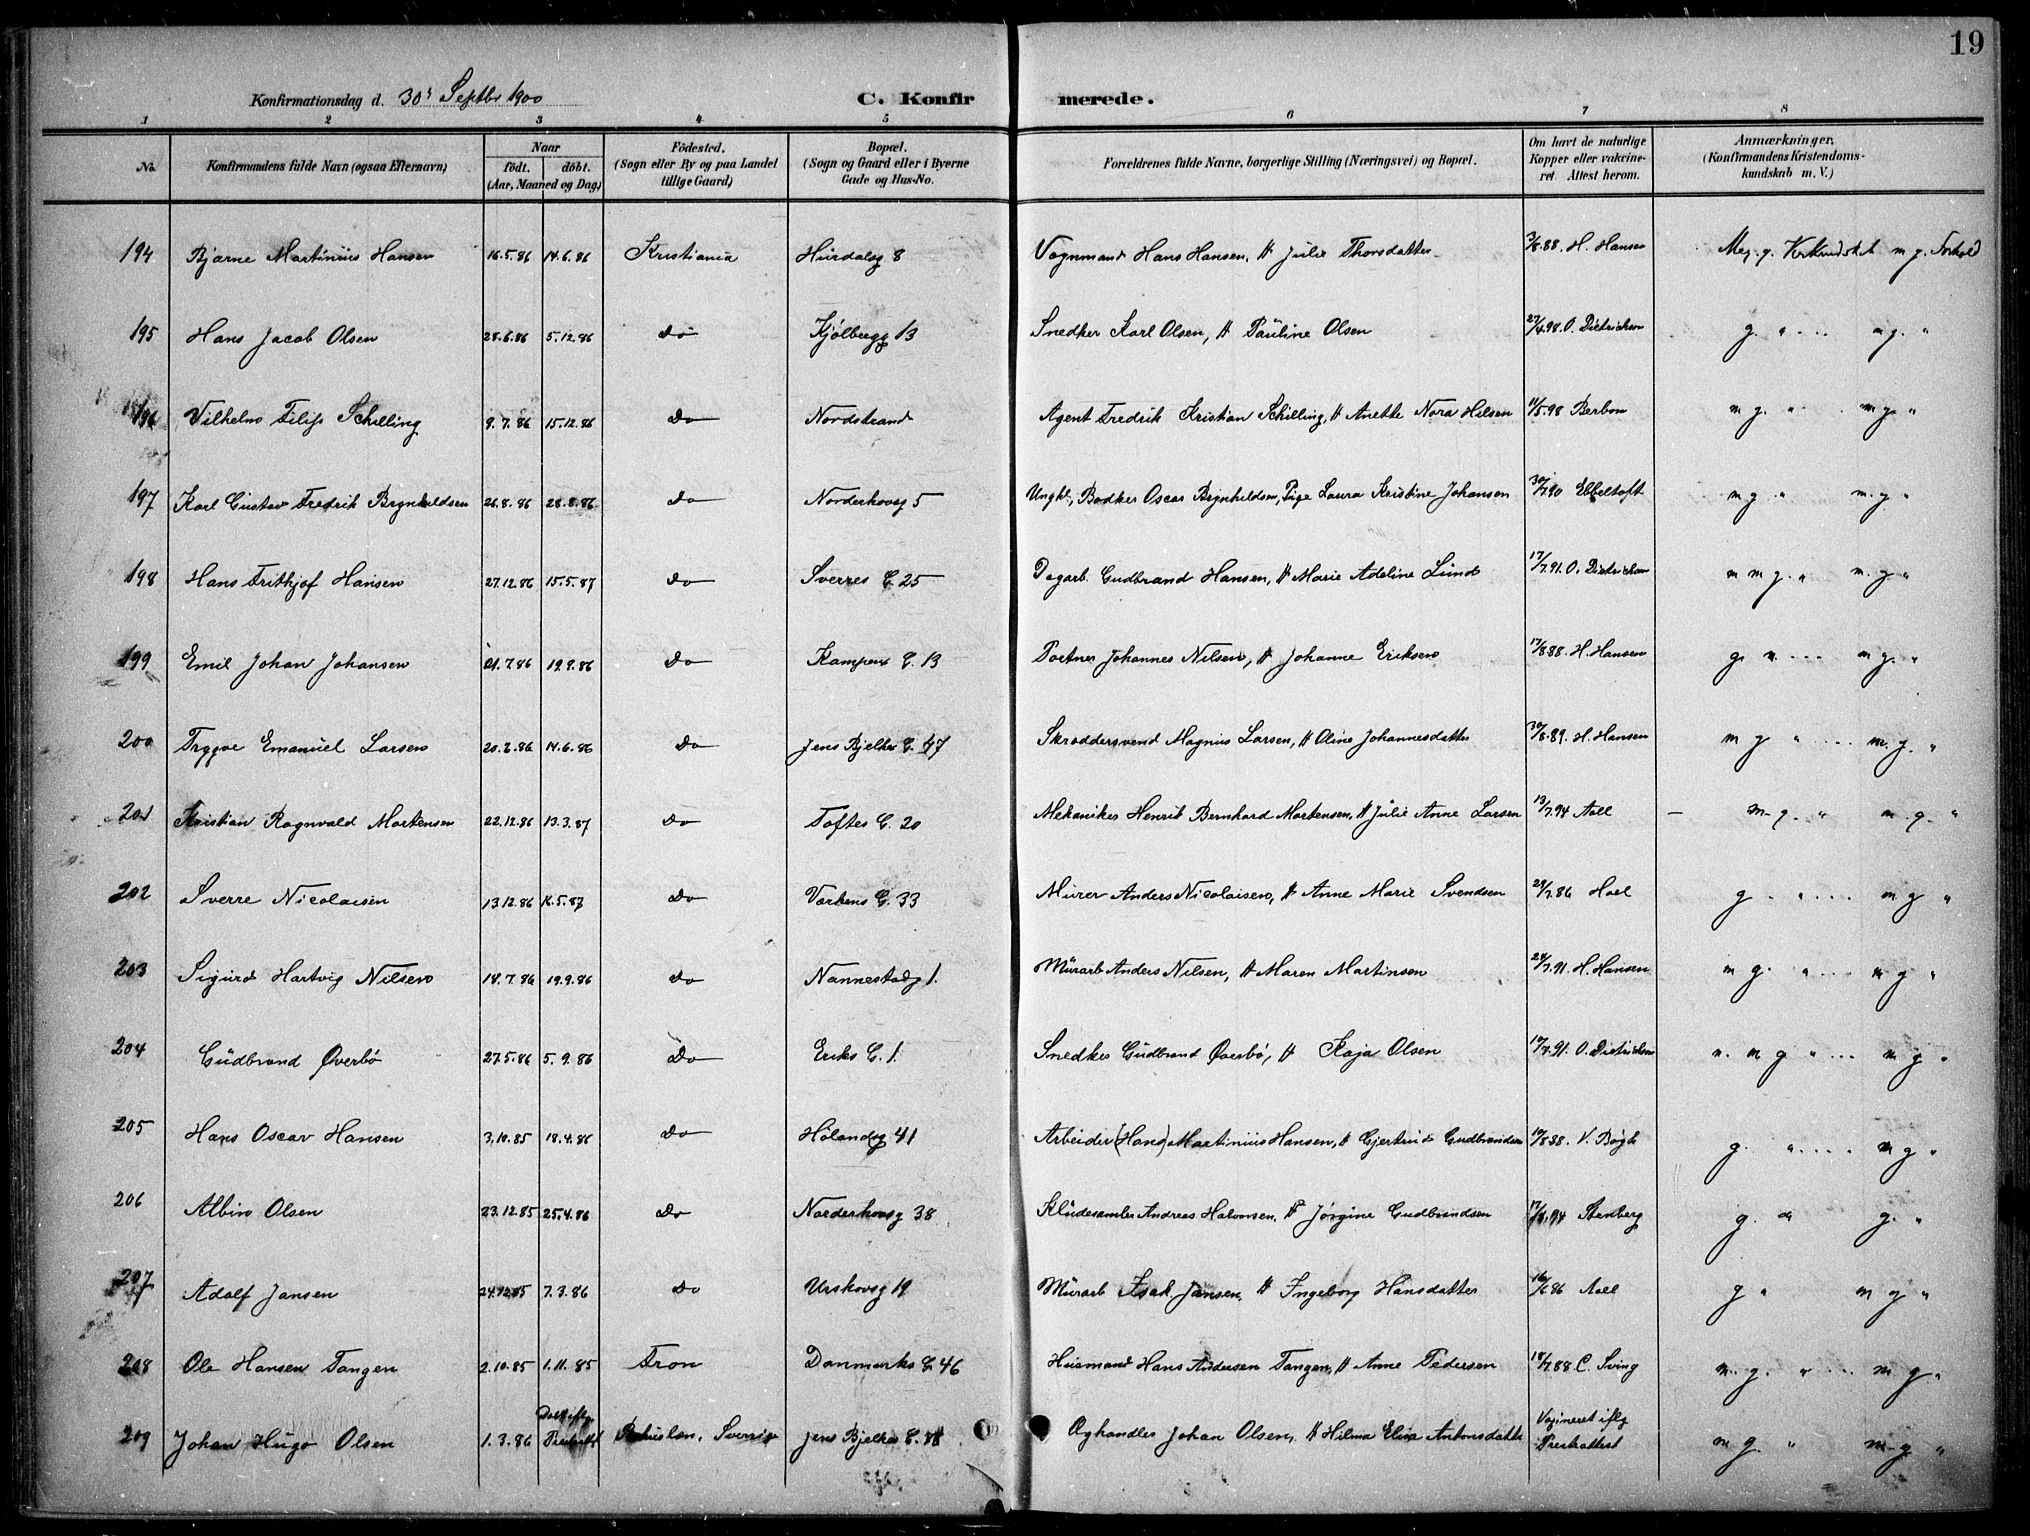 19
Konfirmationsdag d. 30' Septbr 1900 C. Konfirmerede.
1 2 3 4 5 6 7 8
No. Konfirmandens fulde Navn (ogsaa Efternavn) Naar födt. döbt. (Aar, Maaned og Dag) Födested. (Sogn eller By og paa Landet tillige Gaard) Bopæl. (Sogn og Gaard eller i Byerne Gade og Hus-No. Forældrenes fulde Navne, borgerlige Stilling (Næringsvei) og Bopæl. Om havt de naturlige Kopper eller vakcineret. Attest herom. Anmærkninger, (Konfirmandens Kristendomskundskab m. V.)
194 Bjarne Martinius Hansen 16.5.86 14.6.86 Kristiania Hurdalsg 8 Vognmand Hans Hansen, H Julie Thorsdatter 3/8.88. H. Hansen Meg. g. Krkundskab m g. Forhold
195 Hans Jacob Olsen 28.6.86 5.12.86 Do Kjølbergg 13 Snedker Karl Olsen, H Pauline Olsen 27/4.98. O. Dietrichson g. " ... m g. "
196 Vilhelm Filip Schilling 9.7.86 15.12.86 Do Nordstrand Agent Fredrik Kristian Schilling, H Anette Nora Hilsen 11/5.98 Berbom m g. " . m g. "
197 Karl Gustav Fredrik Brynhildsen 26.8.86 28.8.86 Do Norderhovsg 5 Ungkl, Bødker Oscar Brynhildsen, Pige Laura Kristine Johansen 30/7.90 Ebbeltoft m g " m. g "
198 Hans Frithjof Hansen 27.12.86 15.5.87 Do Sverres G. 25 Dagarb. Gudbrand Hansen, H Marie Adeline Lund 17/7.91. O. Dietrichson m m g. " m. g "
199 Emil Johan Johansen 21.7.86 19.9.86 Do Kampens G. 13 Portner Johannes Nilsen, H Johanne Eriksen 17/8.88. H. Hansen g. " ... m g. "
200 Trygve Emanuel Larsen 20.2.86 14.6.86 Do Jens Bjelkes G. 47 Skræddersvend Magnus Larsen, H Oline Johannesdatter 30/8.89. H. Hansen m g " ... m. g. "
201 Kristian Ragnvald Mortensen 22.12.86 13.3.87 Do Toftes G. 20 Mekaniker Henrik Bernhard Mortensen, H Julie Anne Larsen 13/7.94 Aall — m g. " m. g. "
202 Sverre Nicolaisen 13.12.86 16.5.87 Do Varbens G. 33 Murer Anders Nicolaisen, H Anne Marie Svendsen 29/7.86 Hoel g. " ... m g "
203 Sigurd Hartvig Nilsen 18.7.86 19.9.86 Do Nannestadg 1. Murarb Anders Nilsen, H Maren Martinsen 24/7.91. H. Hansen m g. " . m g "
204 Gudbrand Øverbø 27.5.86 5.9.86 Do Eriks G. 1. Snedker Gudbrand Øverbø, H Kaja Olsen 17/7.91. O. Dietrichson m. m g " ... m g "
205 Hans Oscar Hansen 3.10.85 18.4.86 Do Hølandsg 41 Arbeider (Hans) Martinius Hansen, H Gjertrud Gudbrandsen 10/8.88. V. Bøgh g. " .... m g "
206 Albin Olsen 23.12.85 25.4.86 Do Norderhovsg 38 Kludesamler Andreas Halvorsen, F Jørgine Gudbrandsen 17/8.94 Stenberg g. " g. "
207 Adolf Jansen 24.12.85 7.3.86 Do Urskovsg 19 Murarb Isak Jansen, H Ingeborg Hansdatter 16/6.86 Aall g " m g "
208 Ole Hansen Tangen 2.10.85 1.11.85 Fron Danmarks G. 46 Husmand Hans Andersen Tangen, H Anne Pedersen 18/7.88 C. Sving m. g. " ... m g. "
209 Johan Hugo Olsen 1.3.86 Døbt iflg. Presteatt Bohuslæn. Sverrige Jens Bjelkes G. Øghandler Johan Olsen, H Hilma Elisa Antonsdatter Vaxineret iflg Presteattest m g. " m g "